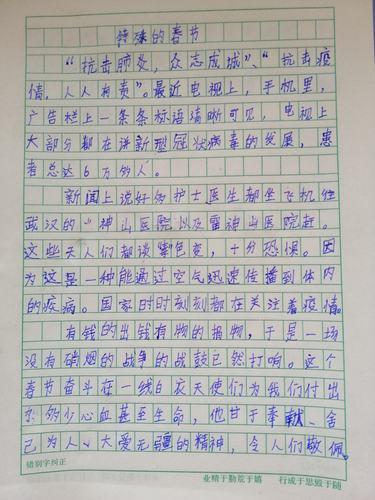 特殊的春节
“抗击肺炎,众志成城”、“抗击疫
情,人人有责”。最近电视上,手机里,
广告栏上一条条标语清晰可见,电视上
大部分都在讲新型冠状病毒的发展,患
者总达6万多人。
新闻上说好多护士医生都坐飞机往
武汉的“神山医院以及雷神山医院赶。
这些天人们都谈“色变,十分恐惧。因
为这是一种能通过空气迅速传播到体内
的疾病。国家时时刻刻都在关注着疫情。
有钱的出钱有物的捐物,于是一场
没有硝烟的战争的战鼓已然打响。这个
春节奋斗在一线白衣天使们为我们付出
多少心血甚至生命,他甘于奉献、舍
己为人、大爱无疆的精神,令人们敬佩。
错别字纠正
业精于勤荒于嬉 行成于思毁于随